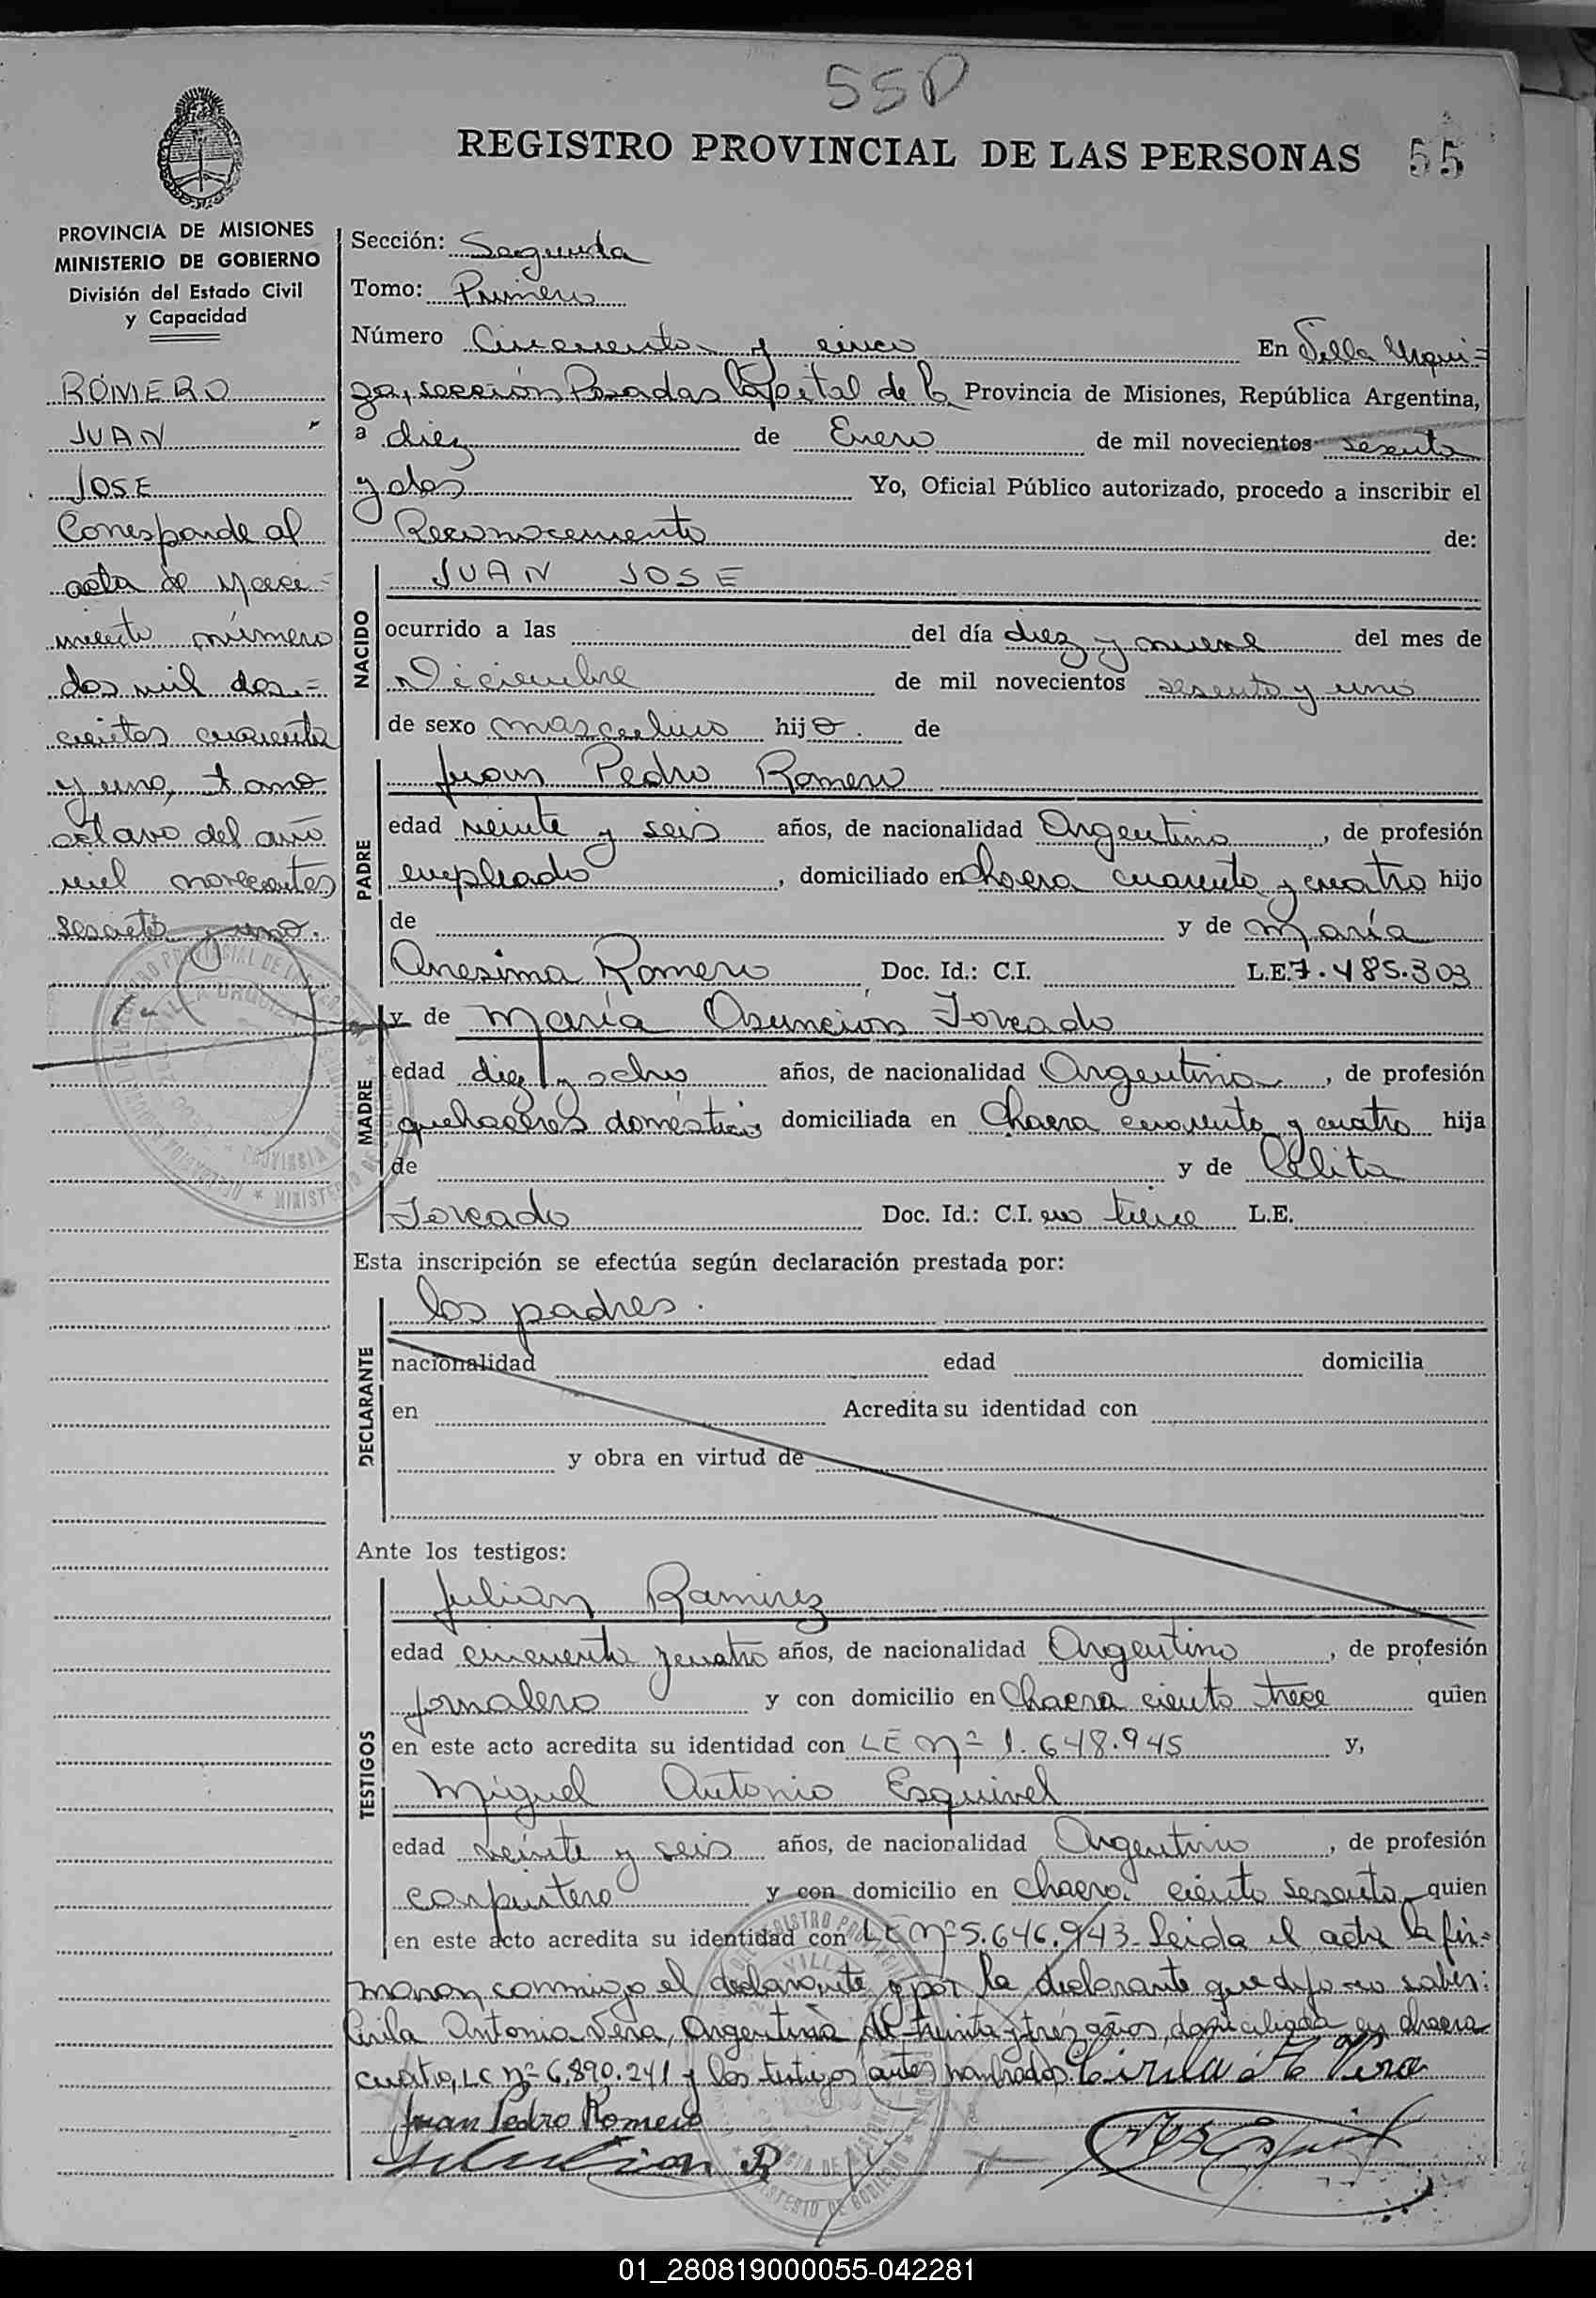 55D
REGISTRO PROVINCIAL DE LAS PERSONAS 55
PROVINCIA DE MISIONES
MINISTERIO DE GOBIERNO
División del Estado Civil
y Capacidad
ROMERO
JUAN
JOSE
Corresponde al
acta de naci=
miento número
dos mil dos=
cientos cuarenta
y uno, tomo
octavo del año
mil novecientos
sesenta y uno.
Sección: Segunda
Tomo: Primero
Número Cincuenta y cinco En Villa Urqui=
za, sección Posadas Capital de la Provincia de Misiones, República Argentina,
a diez de Enero de mil novecientos sesenta
y dos Yo, Oficial Público autorizado, procedo a inscribir el
Reconocimiento de:
NACIDO
JUAN JOSE
ocurrido a las del día diez y nueve del mes de
Diciembre de mil novecientos sesenta y uno
de sexo masculino hijo. de
PADRE
Juan Pedro Romero
edad veinte y seis años, de nacionalidad Argentino, de profesión
empleado, domiciliado en chacra cuarenta y cuatro hijo
de y de María
Onesima Romero Doc. Id.: C.I. L.E. 7.485.303
y de María Asunción Toreado
MADRE
edad diez y ocho años, de nacionalidad Argentina, de profesión
quehaceres domésticos domiciliada en Chacra cuarenta y cuatro hija
de y de Celita
Toreado Doc. Id.: C.I. no tiene L.E.
Esta inscripción se efectúa según declaración prestada por:
DECLARANTE
los padres.
nacionalidad edad domicilia
en Acredita su identidad con
y obra en virtud de
Ante los testigos:
TESTIGOS
Julian Ramirez
edad cincuenta y cuatro años, de nacionalidad Argentino, de profesión
jornalero y con domicilio en Chacra ciento trece quien
en este acto acredita su identidad con LE Nº 1.648.945 y,
Miguel Antonio Esquivel
edad veinte y seis años, de nacionalidad Argentino, de profesión
carpintero y con domicilio en chacra ciento sesenta quien
en este acto acredita su identidad con LE Nº 5.646.943- Leida el acta la fir=
maron conmigo el declarante y por la declarante que dijo no saber:
Cirila Antonia Vera, Argentina, de treinta y tres años, domiciliada en chacra
cuatro, LC Nº 6.890.241 y los testigos antes nombrados. Cirila A Vera
Juan Pedro Romero
Julian R
01_280819000055-042281